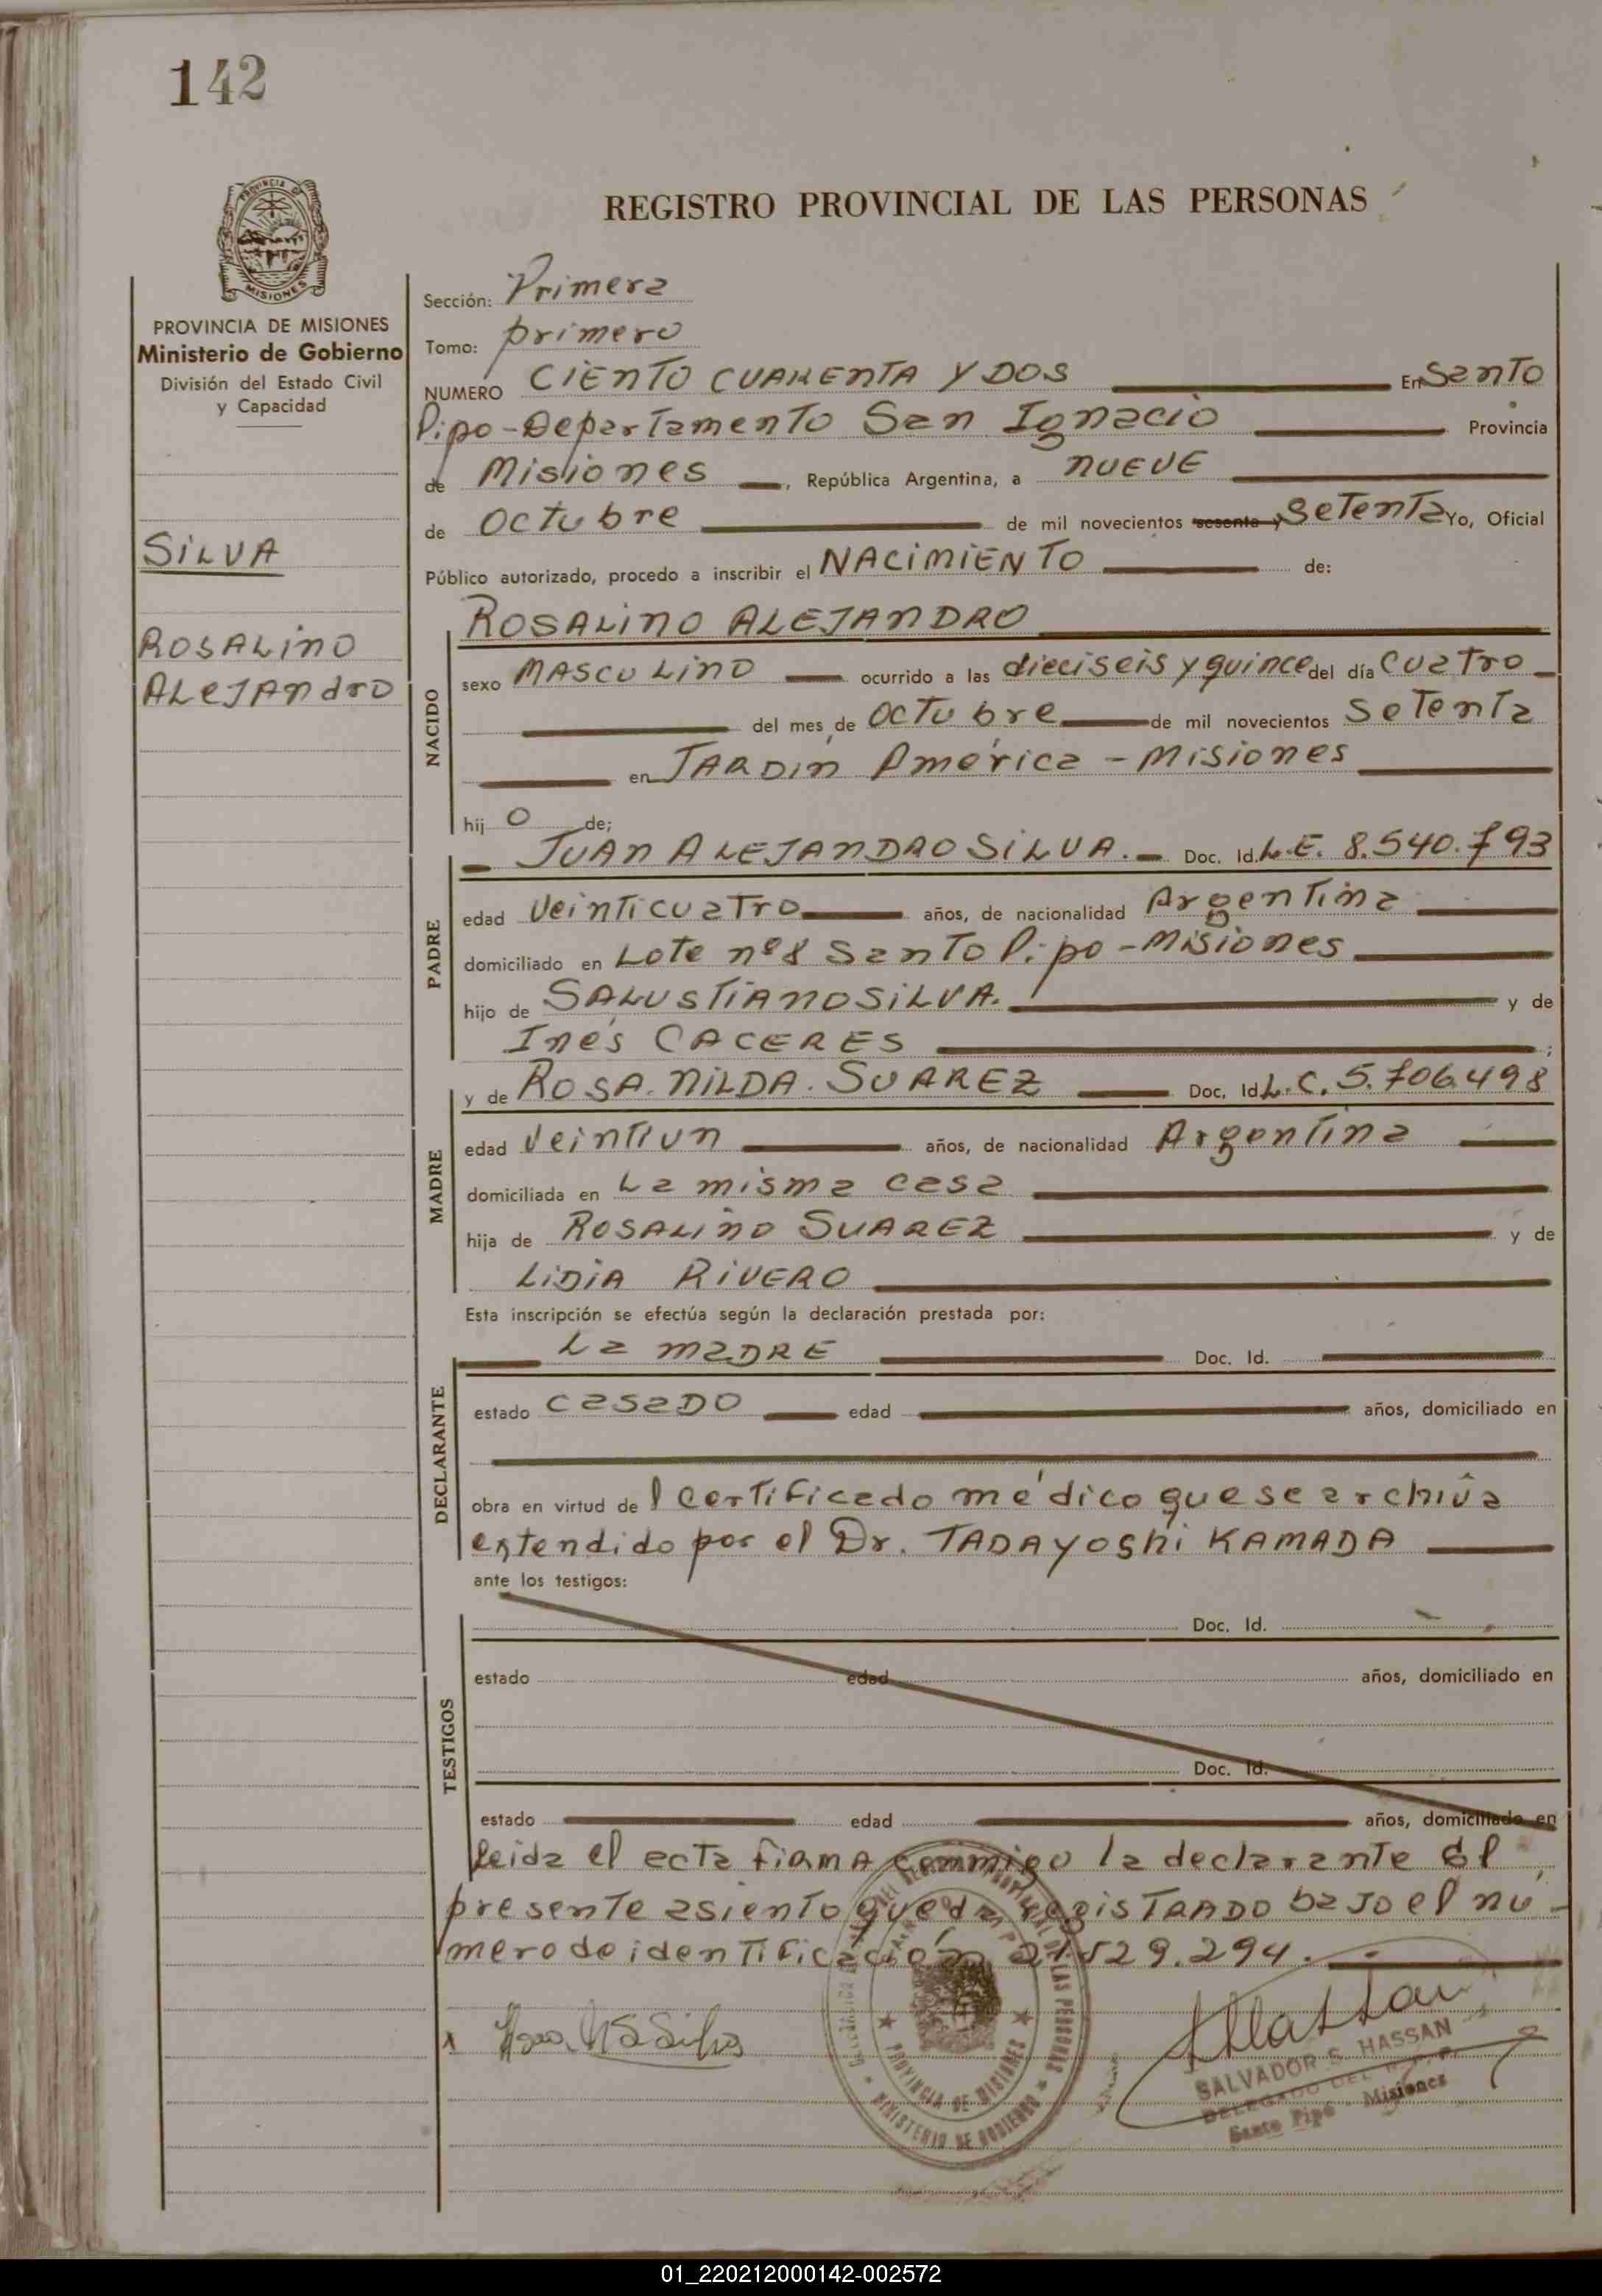 142
REGISTRO PROVINCIAL DE LAS PERSONAS
PROVINCIA DE MISIONES
MISIONES
PROVINCIA DE MISIONES
Ministerio de Gobierno
División del Estado Civil
y Capacidad
SILVA
ROSALINO
ALEJANDRO
Sección: Primera
Tomo: primero
NUMERO CIENTO CUARENTA Y DOS En Santo
Pipo - Departamento San Ignacio Provincia
de Misiones, República Argentina, a nueve
de Octubre de mil novecientos sesenta y setenta Yo, Oficial
Público autorizado, procedo a inscribir el NACIMIENTO de:
NACIDO
ROSALINO ALEJANDRO
sexo MASCULINO ocurrido a las dieciseis y quince del día cuatro
del mes de octubre de mil novecientos setenta
en JARDIN América - Misiones
hij o de;
PADRE
JUAN ALEJANDRO SILVA. Doc. Id. L.E. 8.540.793
edad veinticuatro años, de nacionalidad Argentina
domiciliado en Lote nº 8 Santo Pipo - Misiones
hijo de SALUSTIANO SILVA. y de
Inés CACERES ;
MADRE
y de ROSA. NILDA. SUAREZ Doc. Id. L.C. 5.706.498
edad veintiun años, de nacionalidad Argentina
domiciliada en La misma casa
hija de ROSALINO SUAREZ y de
LIDIA RIVERO
Esta inscripción se efectúa según la declaración prestada por:
DECLARANTE
La maDRE Doc. Id.
estado casaDO edad años, domiciliado en
obra en virtud de l certificado médico que se archiva
extendido por el Dr. TADAYOSHI KAMADA
ante los testigos:
TESTIGOS
Doc. Id.
estado edad años, domiciliado en
Doc. Id.
estado edad años, domiciliado en
Leida el acta firma conmigo la declarante el
presente asiento queda registrando bajo el nú-
mero de identificación 21.529.294.
PROVINCIA DE MISIONES
MINISTERIO DE GOBIERNO
SALVADOR S. HASSAN
DELEGADO DEL R.P.P.
Santo Pipo - Misiones
01_220212000142-002572